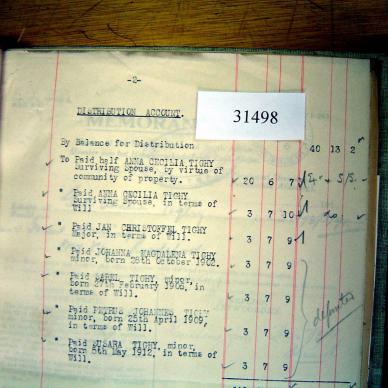 -2-
31498
DISTRIBUTION ACCOUNT.
By Balance for Distribution 40 13 2
To Paid half ANNA CECILIA TIGHY
Surviving Spouse, by virtue of
community of property. 20 6 7
" Paid ANNA CECILIA TIGHY
Surviving Spouse, in terms of
Will 3 7 10
" Paid JAN CHRISTOFFEL TIGHY
Major, in terms of Will. 3 7 9
" Paid JOHANNA MAGDALENA TIGHY
minor, born 28th October 1902. 3 7 9
" Paid TIGHY, minor,
born 27th February 1905, in
terms of Will. 3 7 9
" Paid PETRUS JOHANNES TIGHY
minor, born 25th April 1909,
in terms of Will. 3 7 9
" Paid SUSARA TIGHY, minor,
born 5th May 1912, in terms of
Will. 3 7 9